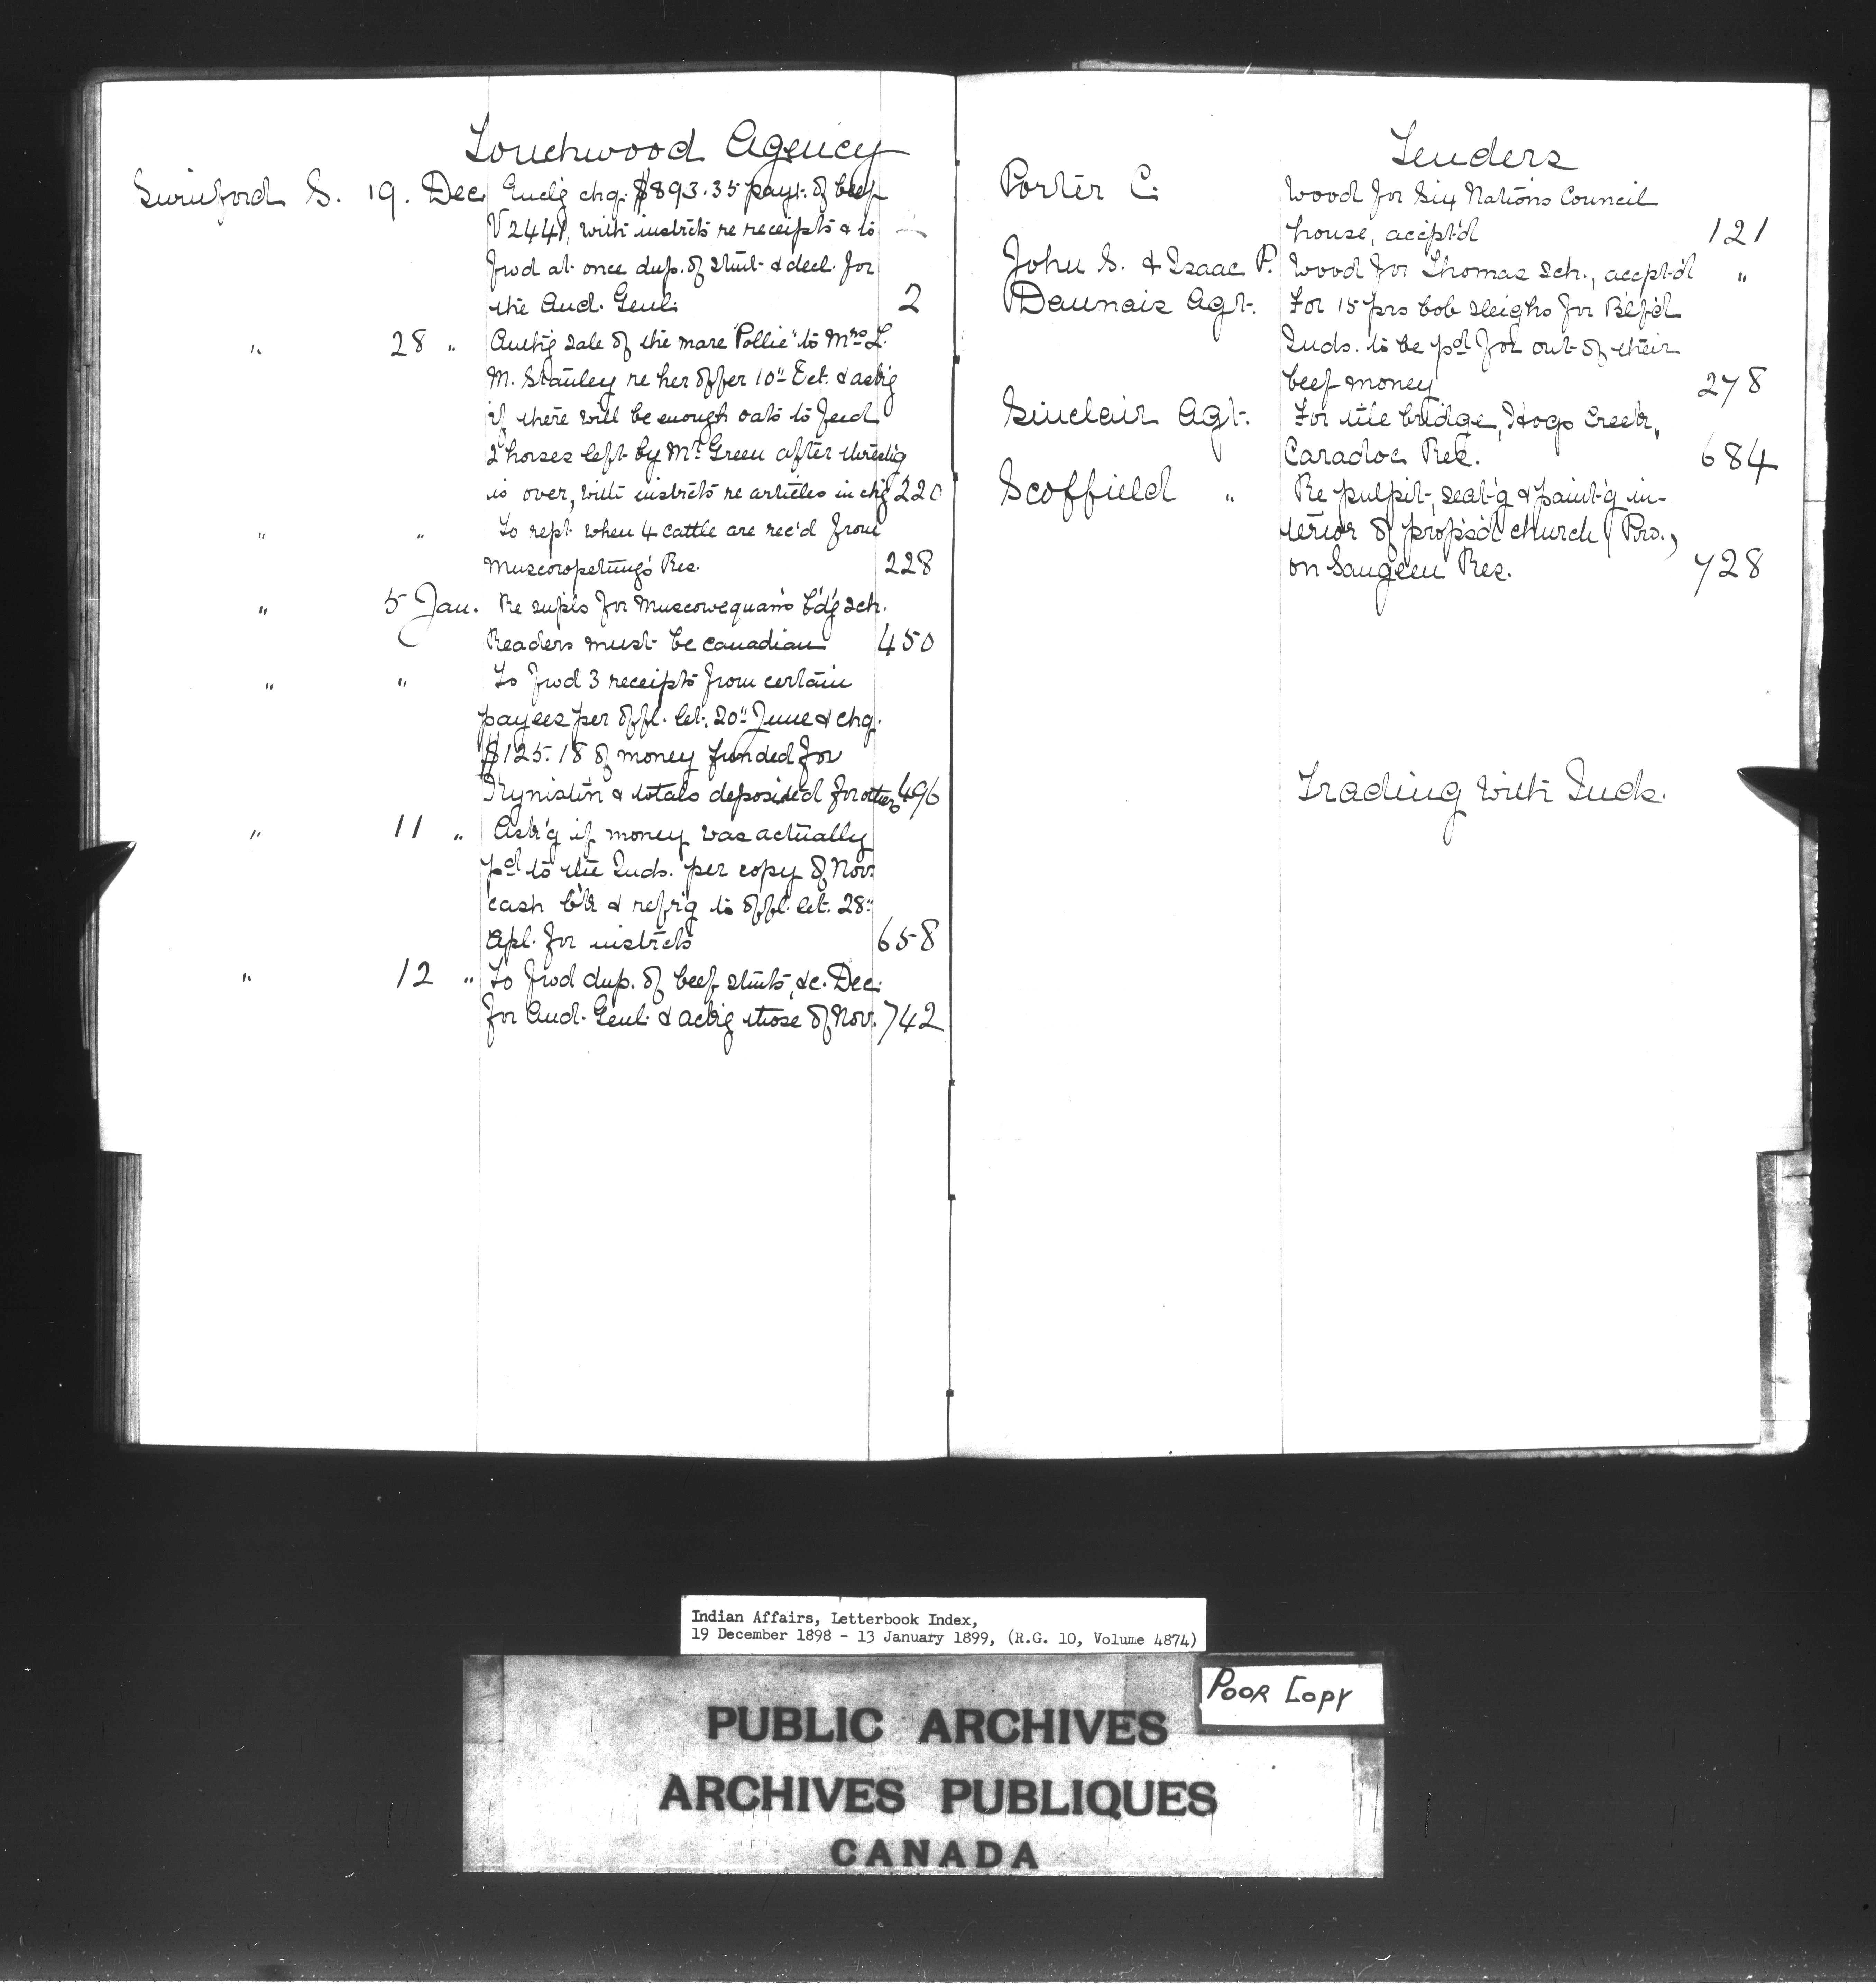 Touchwood Agency
Swinford S. 19. Dec. Encl'g chq. $893.35 payt. of beef
V 2441, with instrcts re receipts & to
fwd at once dup. of stmt & decl. for
the Aud. Genl. 2
" 28 " Auth'g sale of the mare "Pollie" to Mrs L.
M. Stanley re her offer 10" Oct. & ask'g
if there will be enough oats to feed
2 horses left by Mr Green after thresh'g
is over, with instrcts re articles in ch'g 220
" " To rept when 4 cattle are rec'd from
Muscowpetung's Res. 228
" 5 Jan. Re supls for Muscowequan's b'd'g sch.
Readers must be canadian 450
" " To fwd 3 receipts from certain
payees per offl. let. 20" June & chq.
$125.18 of money funded for
Kyniston & totals deposited for others 496
" 11 " Ask'g if money was actually
pd to the Inds. per copy of Nov.
cash b'k & ref'r'g to offl. let. 28"
Apl. for instrcts 658
" 12 " To fwd dup. of beef stmts, &c. Dec.
for Aud. Genl. & ack'g those of Nov. 742
Tenders
Porter C. Wood for Six Nations Council
house, accpt'd 121
John S. & Isaac P. Wood for Thomas sch., accpt'd "
Daunais Agt. For 15 prs bob sleighs for Bl'f't
Inds. to be pd for out of their
beef money 278
Sinclair Agt. For tile bridge, Hogs Creek,
Caradoc Res. 684
Scoffield " Re pulpit, seat'g & paint'g in-
terior of propos'd church (Prs.)
on Saugeen Res. 728
Trading with Inds.
Indian Affairs, Letterbook Index,
19 December 1898 - 13 January 1899, (R.G. 10, Volume 4874)
Poor Copy
PUBLIC ARCHIVES
ARCHIVES PUBLIQUES
CANADA